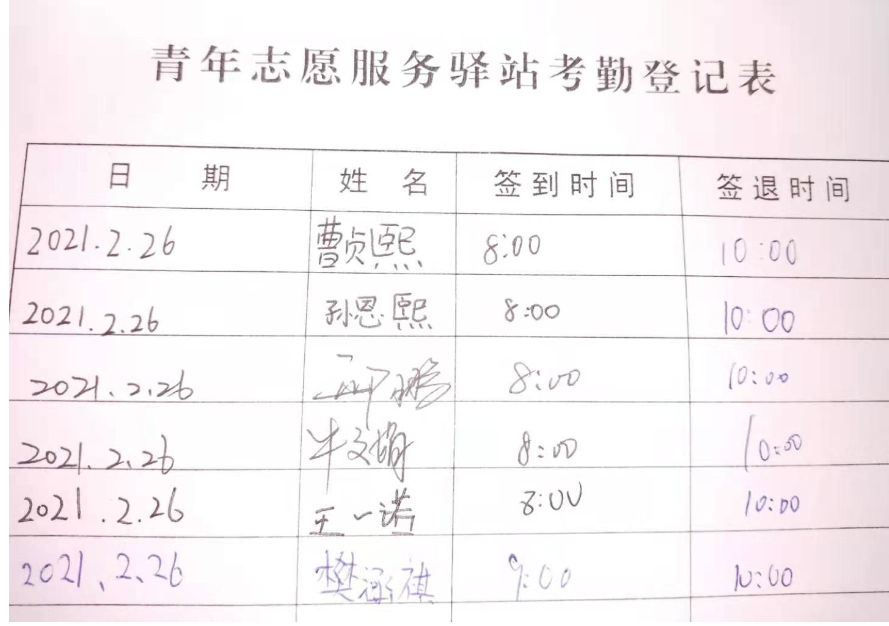 青年志愿服务驿站考勤登记表
日 期 姓 名 签到时间 签退时间
2021.2.26 曹贞熙 8:00 10:00
2021.2.26 孙恩熙 8:00 10:00
2021.2.26 8:00 10:00
2021.2.26 牛文娟 8:00 10:00
2021.2.26 王一诺 8:00 10:00
2021.2.26 樊涵祺 9:00 10:00